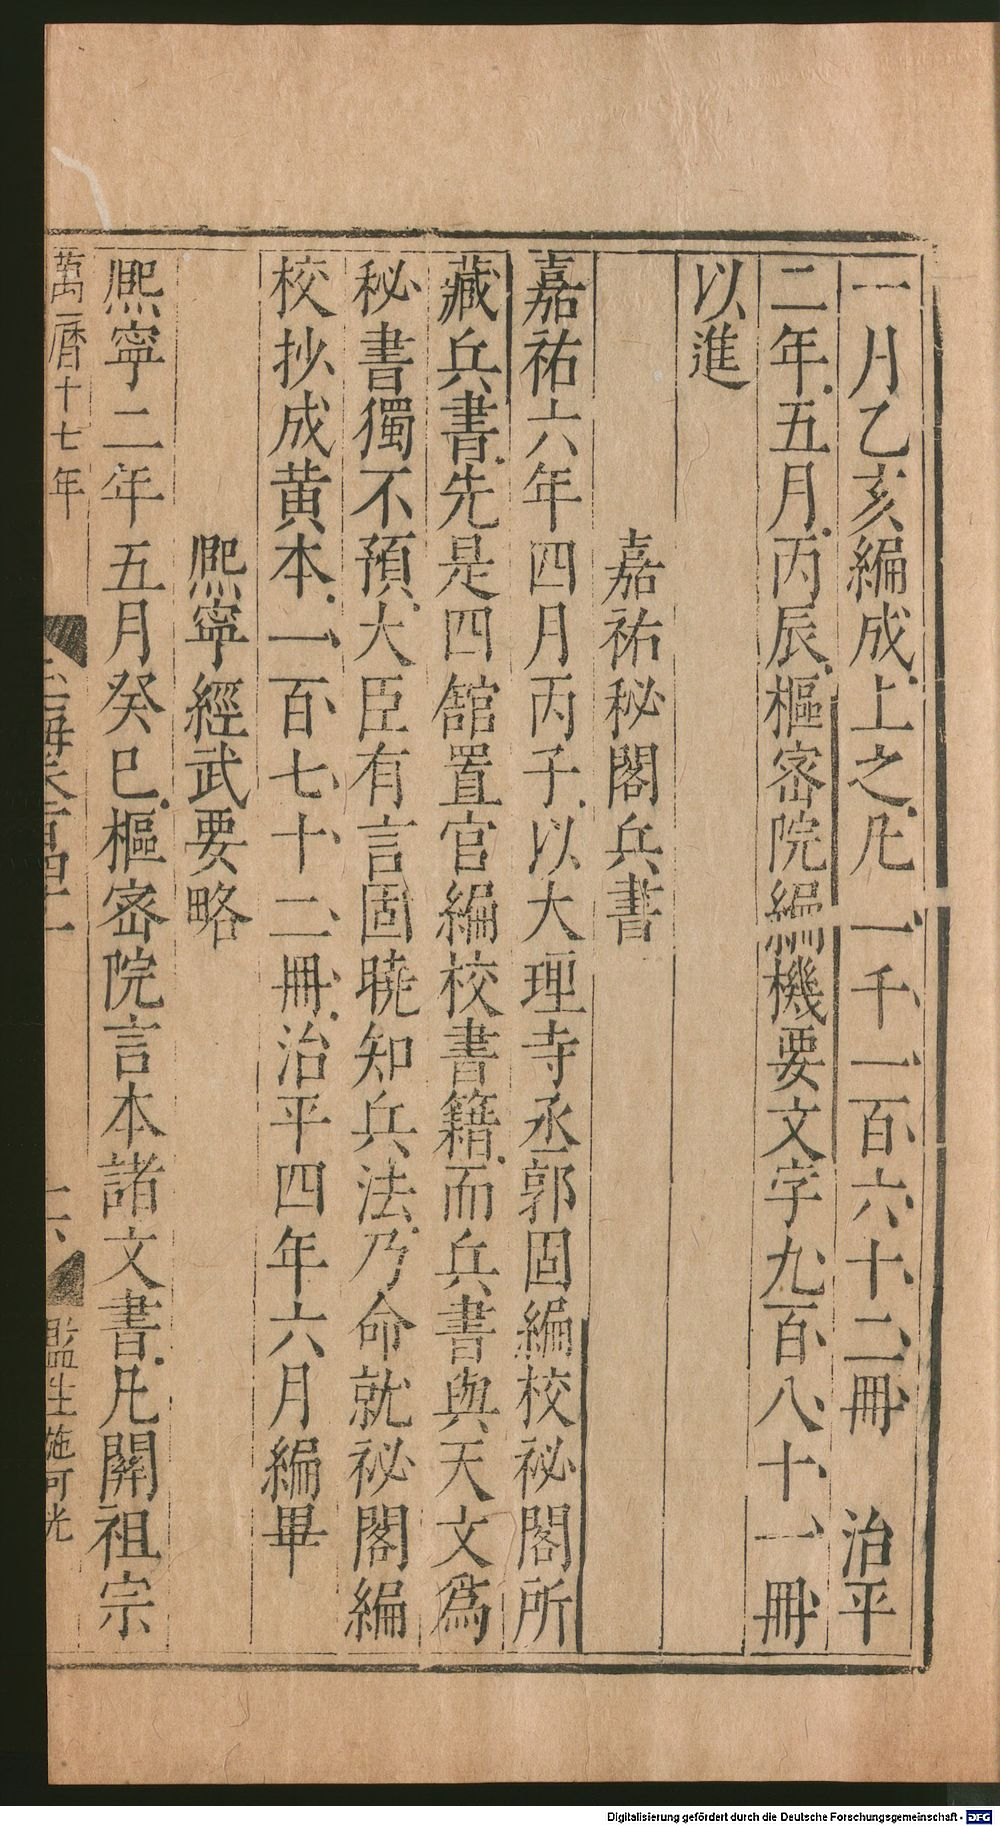 一月乙亥編成上之凡一千一百六十二冊　治平
二年五月丙辰樞密院編機要文字九百八十一冊
以進
嘉祐秘閣兵書
嘉祐六年四月丙子以大理寺丞郭固編校祕閣所
藏兵書先是四舘置官編校書籍而兵書與天文爲
秘書獨不預大臣有言固曉知兵法乃命就祕閣編
校抄成黄本一百七十二冊治平四年六月編畢
熈寧經武要略
熈寧二年五月癸巳樞密院言本諸文書凡關祖宗
萬曆十七年　玉海卷百四十一　十六　監生施可光
Digitalisierung gefördert durch die Deutsche Forschungsgemeinschaft - DFG